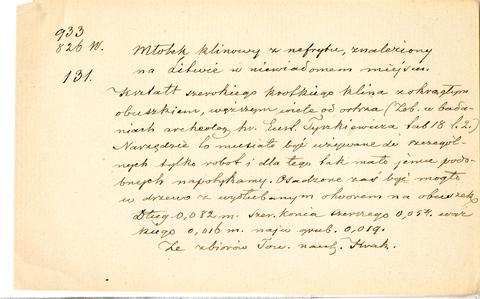 933
826 W.
131.
Młotek klinowy z nefrytu, znaleziony
na Litwie w niewiadomem miejscu.
Kształt szerokiego krótkiego klina z okrągłym
obuszkiem, węższym wiele od ostrza (Zob. w bada-
niach archeolog. hr. Eust. Tyszkiewicza tab 18 f. 2.)
Narzędzie to musiało być używane do szczegól-
nych tylko robot, i dla tego tak mało jemu podo-
bnych napotykamy. Osadzone zaś być mogło
w drzewo z wydłubanym otworem na obuszek
Dług. 0,082 m. szer. końca szerszego 0,054. wąz-
kiego 0,016 m. najw. grub. 0,019.
Ze zbiorów Tow. nauk. Krak.